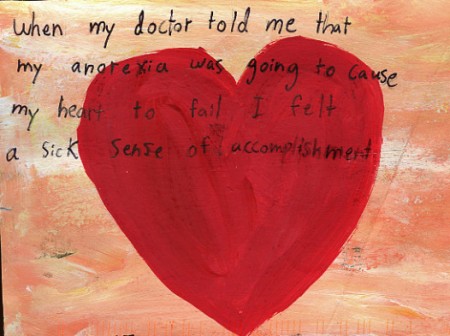 When my doctor told me that
my anorexia was going to cause
my heart to fail I felt
a sick sense of accomplishment